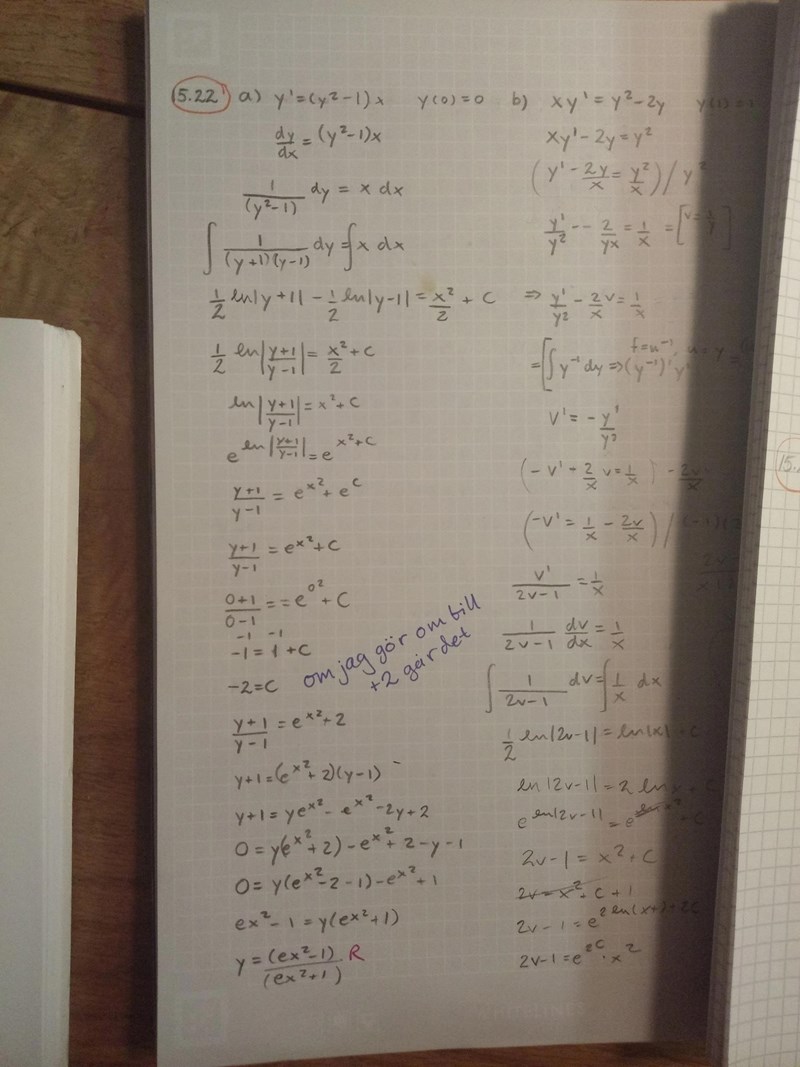 5.22 a) y' = (y²-1)x y(0)=0
dy/dx = (y²-1)x
1/(y²-1) dy = x dx
∫ 1/((y+1)(y-1)) dy = ∫ x dx
1/2 ln|y+1| - 1/2 ln|y-1| = x²/2 + C
1/2 ln|(y+1)/(y-1)| = x²/2 + C
ln|(y+1)/(y-1)| = x² + C
e^(ln|(y+1)/(y-1)|) = e^(x²+C)
(y+1)/(y-1) = e^(x²) + e^C
(y+1)/(y-1) = e^(x²) + C
(0+1)/(0-1) = = e^(0²) + C
-1 -1
-1 = 1 + C
-2 = C
om jag gör om till
+2 går det
(y+1)/(y-1) = e^(x²) + 2
y+1 = (e^(x²) + 2)(y-1)
y+1 = ye^(x²) - e^(x²) - 2y + 2
0 = y(e^(x²) + 2) - e^(x²) + 2 - y - 1
0 = y(e^(x²) - 2 - 1) - e^(x²) + 1
ex² - 1 = y(ex² + 1)
y = (ex²-1)/(ex²+1) R
b) xy' = y² - 2y
xy' - 2y = y²
(y' - 2y/x = y²/x) / y²
y'/y² - - 2/yx = 1/x = [v =
⇒ y'/y² - 2/x v = 1/x
= [∫ y⁻¹ dy ⇒ (y⁻¹)' y' f = u⁻¹, u = y
v' = - y'/y²
(-v' - 2/x v = 1/x) - 2v/x
(-v' = 1/x - 2v/x) /
v'/(2v-1) = 1/x
1/(2v-1) dv/dx = 1/x
∫ 1/(2v-1) dv = ∫ 1/x dx
1/2 ln|2v-1| = ln|x| + C
ln|2v-1| = 2 ln x + C
e^(ln|2v-1|) = e^(ln x²) + C
2v-1 = x² + C
2v = x² + C + 1
2v-1 = e^(2 ln(x) + 2C)
2v-1 = e^(2C) · x²